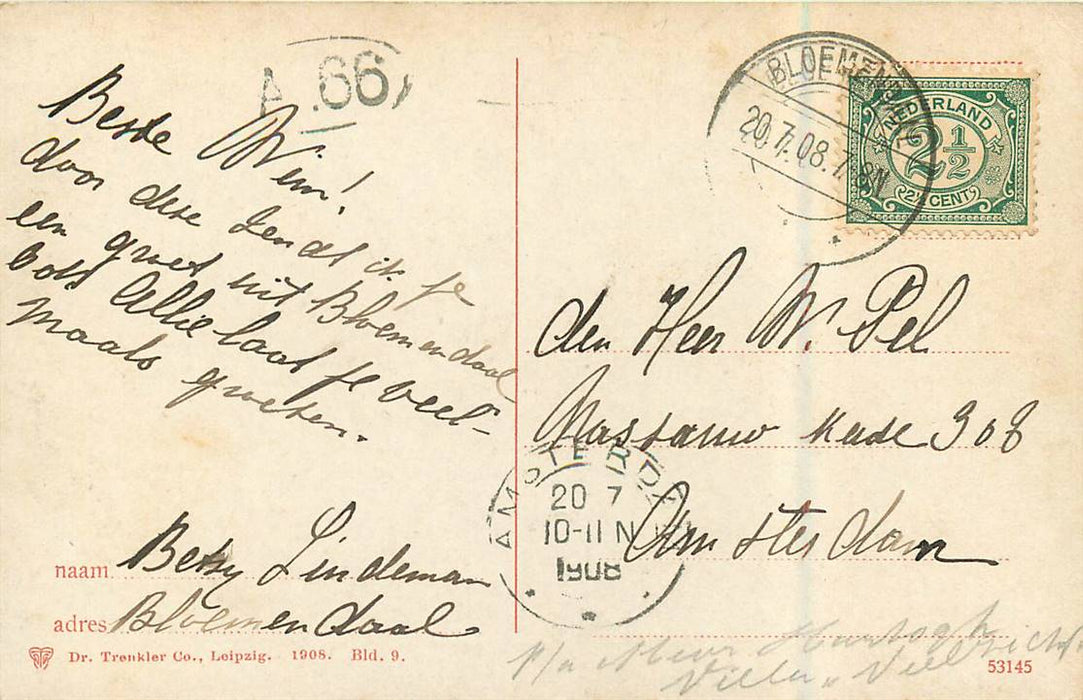 A .66
Beste Wim!
door deze zendt ik je
een groet uit Bloemendaal
Ook Allie laat je veel-
maals groeten.
naam Betsy Lindeman
adres Bloemendaal
Dr. Trenkler Co., Leipzig. 1908. Bld. 9.
BLOEMENDAAL
20.7.08.7-8N
NEDERLAND
2 1/2
2½ CENT
den Heer W. Pel
Nassauw kade 308
Amsterdam
AMSTERDAM
20 7
10-11 N
1908
p/a Hartogh
Villa
53145